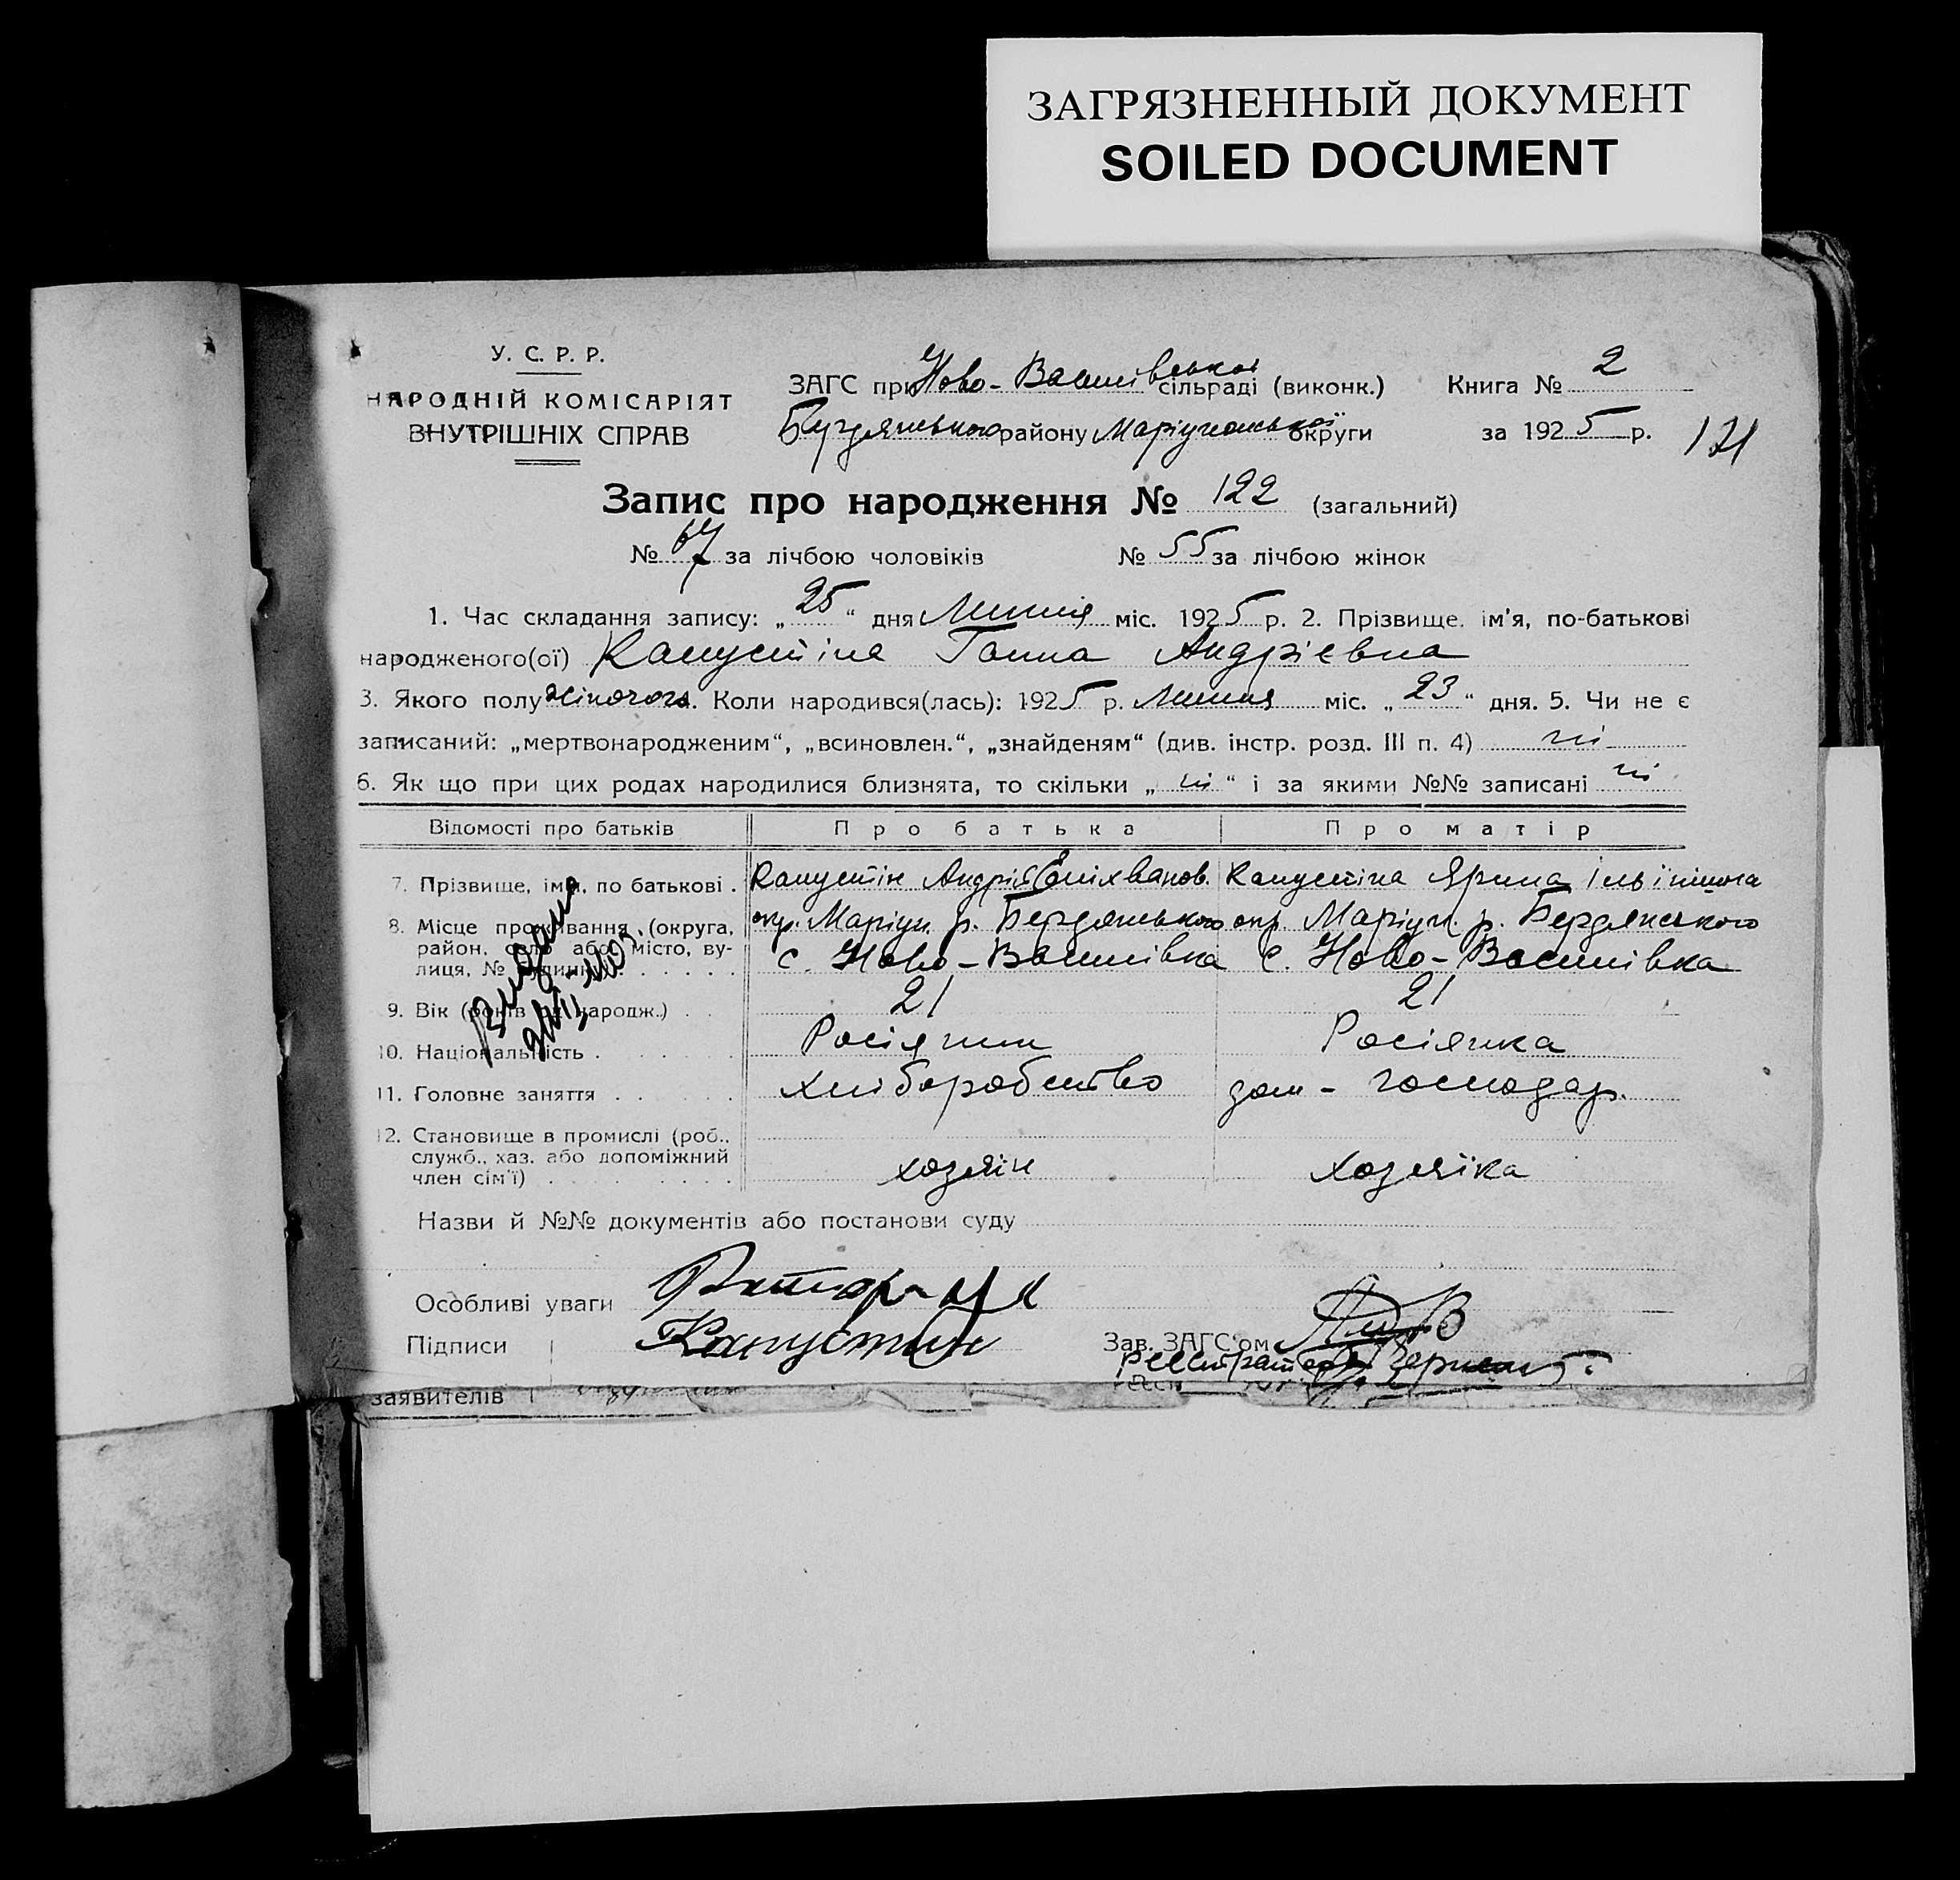 ЗАГРЯЗНЕННЫЙ ДОКУМЕНТ
SOILED DOCUMENT
У. С. Р. Р.
НАРОДНІЙ КОМІСАРІЯТ
ВНУТРІШНІХ СПРАВ
ЗАГС при Ново-Василівської сільраді (виконк.) Книга № 2
Бердянського району Маріупольської округи за 1925 р. 121
Запис про народження № 122 (загальний)
№ 67 за лічбою чоловіків № 55 за лічбою жінок
1. Час складання запису: „25“ дня Липня міс. 1925 р. 2. Прізвище, ім'я, по-батькові
народженого(ої) Капустіна Ганна Андрієвна
3. Якого полу жіночого. Коли народився(лась): 1925 р. Липня міс. „23“ дня. 5. Чи не є
записаний: „мертвонародженим“, „всиновлен.“, „знайденям“ (див. інстр. розд. III п. 4) ні
6. Як що при цих родах народилися близнята, то скільки „ні“ і за якими №№ записані ні
Відомості про батьків Про батька Про матір
7. Прізвище, ім'я, по батькові . Капустін Андрій Капустіна Ярина Ільінішна
8. Місце проживання (округа, район, село або місто, вулиця, № будинку) окр. Маріуп. р. Бердянського окр. Маріуп. р. Бердянського
с. Ново-Василівка с. Ново-Василівка
9. Вік (років од народж.) . . 21 21
10. Національність . Росіянин Росіянка
11. Головне заняття . . . . . . Хліборобство дом-господар.
12. Становище в промислі (роб., служб., хаз. або допоміжний член сім'ї) хозяїн хозяїка
Видано
Назви й №№ документів або постанови суду
Особливі уваги
Підписи Капустин Зав. ЗАГС'ом
заявителів